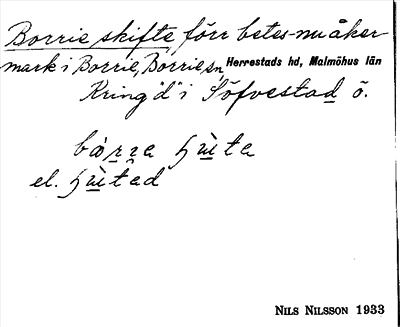 Borrie skifte förr betes- nu åker
mark i Borrie, Borrie sn, Herrestads hd, Malmöhus län
Kring "d" i Söfvestad ö.
el.
NILS NILSSON 1933